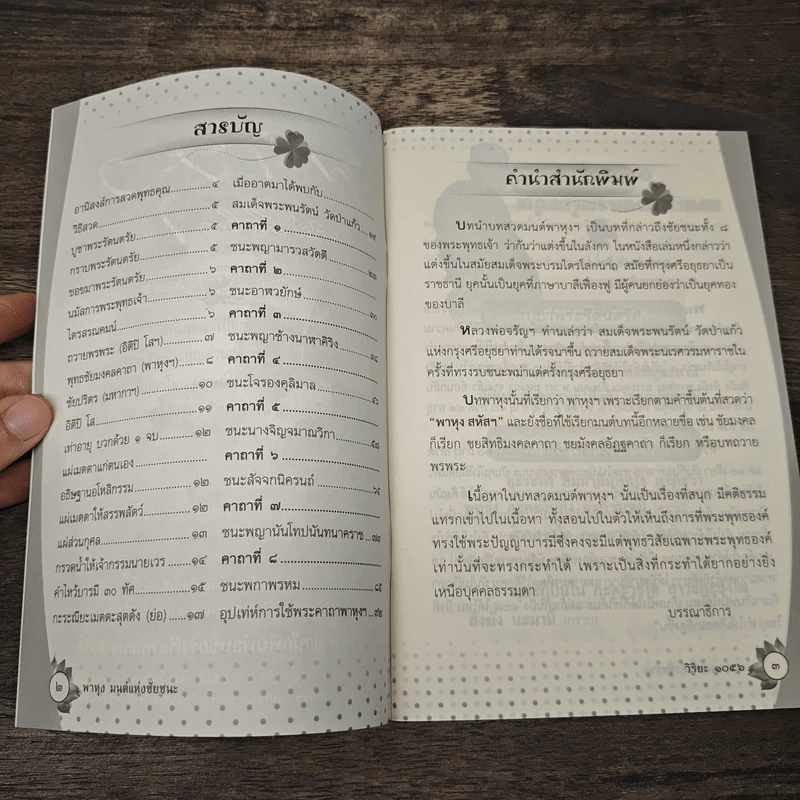 สารบัญ
อานิสงส์การสวดพุทธคุณ.........๔
วิธีสวด.........๕
บูชาพระรัตนตรัย.........๕
กราบพระรัตนตรัย.........๕
ขอขมาพระรัตนตรัย.........๖
นมัสการพระพุทธเจ้า.........๖
ไตรสรณคมน์.........๖
ถวายพรพระ (อิติปิ โสฯ).........๗
พุทธชัยมงคลคาถา (พาหุงฯ).........๘
ชัยปริตร (มหากาฯ).........๑๐
อิติปิ โส.........๑๑
เท่าอายุ บวกด้วย ๑ จบ.........๑๒
แผ่เมตตาแก่ตนเอง.........
อธิษฐานอโหสิกรรม.........๑๒
แผ่เมตตาให้สรรพสัตว์.........๑๒
แผ่ส่วนกุศล.........๑๓
กรวดน้ำให้เจ้ากรรมนายเวร.........๑๔
คำไหว้บารมี ๓๐ ทัศ.........๑๕
กะระณียะเมตตะสุตตัง (ย่อ).........๑๗
เมื่ออาตมาได้พบกับ
สมเด็จพระพนรัตน์ วัดป่าแก้ว...๑๙
คาถาที่ ๑
ชนะพญามารวสวัตตี.........๒๓
คาถาที่ ๒
ชนะอาหวยักษ์.........๓๐
คาถาที่ ๓
ชนะพญาช้างนาฬาคิริง.........๓๘
คาถาที่ ๔
ชนะโจรองคุลิมาล.........๔๖
คาถาที่ ๕
ชนะนางจิญจมาณวิกา.........๕๘
คาถาที่ ๖
ชนะสัจจกนิครนถ์.........๖๕
คาถาที่ ๗
ชนะพญานันโทปนันทนาคราช...๗๓
คาถาที่ ๘
ชนะพกาพรหม.........๘๕
อุปเท่ห์การใช้พระคาถาพาหุงฯ...๙๒
๒ พาหุง มนต์แห่งชัยชนะ
คำนำสำนักพิมพ์
บทนำบทสวดมนต์พาหุงฯ เป็นบทที่กล่าวถึงชัยชนะทั้ง ๘
ของพระพุทธเจ้า ว่ากันว่าแต่งขึ้นในลังกา ในหนังสือเล่มหนึ่งกล่าวว่า
แต่งขึ้นในสมัยสมเด็จพระบรมไตรโลกนาถ สมัยที่กรุงศรีอยุธยาเป็น
ราชธานี ยุคนั้นเป็นยุคที่ภาษาบาลีเฟื่องฟู มีผู้คนยกย่องว่าเป็นยุคทอง
ของบาลี
หลวงพ่อจรัญฯ ท่านเล่าว่า สมเด็จพระพนรัตน์ วัดป่าแก้ว
แห่งกรุงศรีอยุธยาท่านได้รจนาขึ้น ถวายสมเด็จพระนเรศวรมหาราชใน
ครั้งที่ทรงรบชนะพม่าแต่ครั้งกรุงศรีอยุธยา
บทพาหุงนั้นที่เรียกว่า พาหุงฯ เพราะเรียกตามคำขึ้นต้นที่สวดว่า
“พาหุง สหัสฯ” และยังชื่อที่ใช้เรียกมนต์บทนี้อีกหลายชื่อ เช่น ชัยมงคล
ก็เรียก ชยสิทธิมงคลคาถา ชยมังคลอัฏฐคาถา ก็เรียก หรือบทถวาย
พรพระ
เนื้อหาในบทสวดมนต์พาหุงฯ นั้นเป็นเรื่องที่สนุก มีคติธรรม
แทรกเข้าไปในเนื้อหา ทั้งสอนไปในตัวให้เห็นถึงการที่พระพุทธองค์
ทรงใช้พระปัญญาบารมีซึ่งคงจะมีแต่พุทธวิสัยเฉพาะพระพุทธองค์
เท่านั้นที่จะทรงกระทำได้ เพราะเป็นสิ่งที่กระทำได้ยากอย่างยิ่ง
เหนือบุคคลธรรมดา
บรรณาธิการ
วิริยะ ๑๐๕๖ ๓